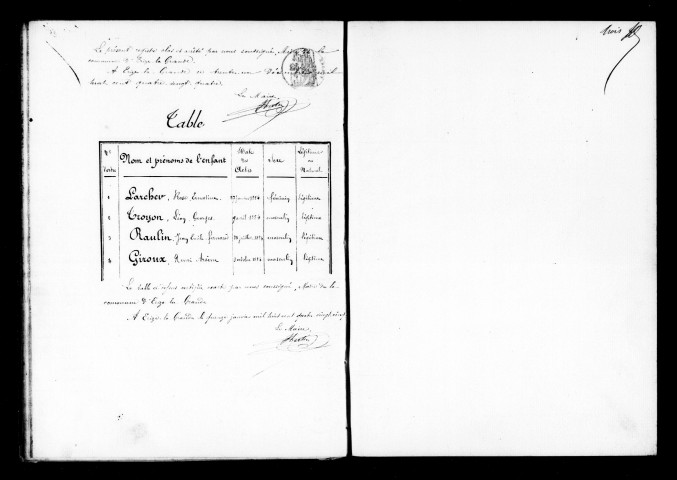 trois
Le présent registre clos et arrêté par nous soussigné, Maire de la
commune d'Erize la Grande.
A Erize la Grande ce trente un Décembre mil
huit cent quatre vingt quatre.
Le Maire,
Table
Nos d'ordre Nom et prénoms de l'enfant Date des Actes Sexe Légitime ou Naturel
1 Larcher, Ernestine 1884 féminin légitime
2 Troyon, Léon Georges avril 1884 masculin légitime
3 Raulin, Jean Emile juillet 1884 masculin légitime
4 Giroux, René Arsène octobre 1884 masculin légitime
La table ci-dessus certifiée exacte par nous soussigné, Maire de la
commune d'Erize la Grande
A Erize la Grande le janvier mil huit cent quatre vingt cinq
Le Maire,